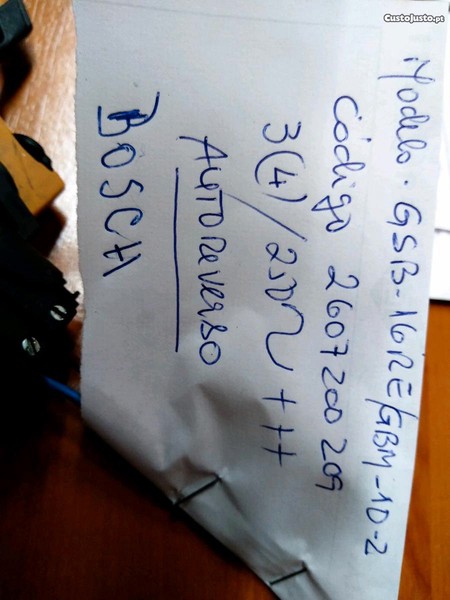 Modelo. GSB-16RE/GBM-10-2
Código 2607200209
3(4)/250V~ +++
AUTOReverso
BOSCH
CustoJusto.pt